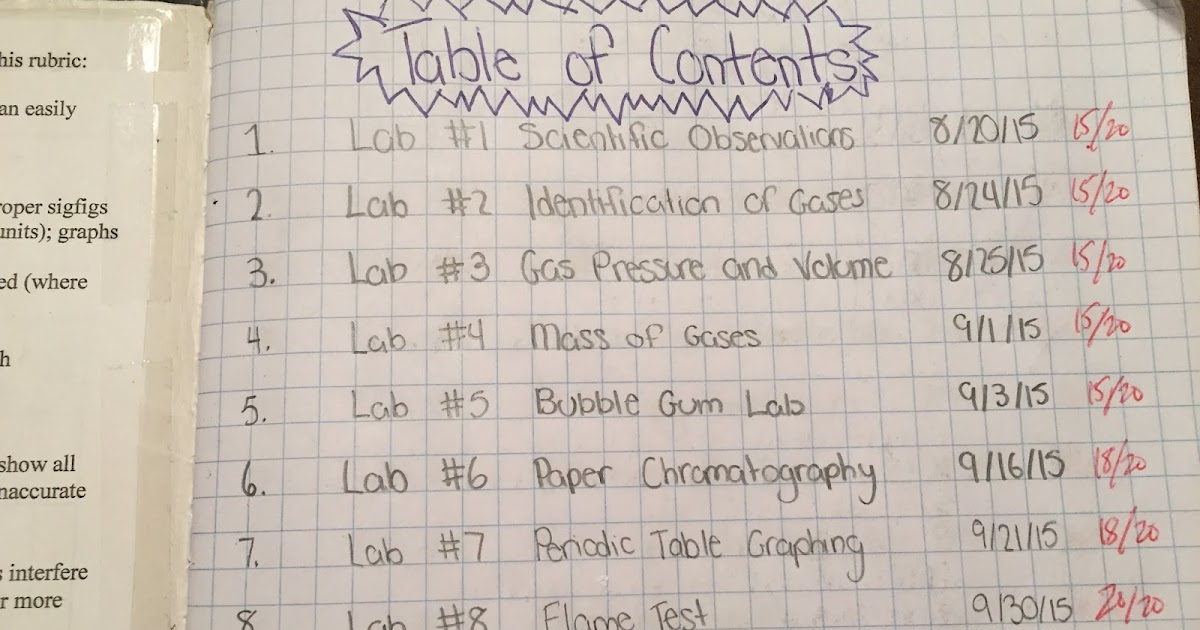 his rubric:
an easily
roper sigfigs
units); graphs
ed (where
h
show all
naccurate
s interfere
r more
Table of Contents
1. Lab #1 Scientific Observations 8/20/15 15/20
2. Lab #2 Identification of Gases 8/24/15 15/20
3. Lab #3 Gas Pressure and Volume 8/25/15 15/20
4. Lab #4 Mass of Gases 9/1/15 15/20
5. Lab #5 Bubble Gum Lab 9/3/15 15/20
6. Lab #6 Paper Chromatography 9/16/15 18/20
7. Lab #7 Periodic Table Graphing 9/21/15 18/20
8 Lab #8 Flame Test 9/30/15 20/20